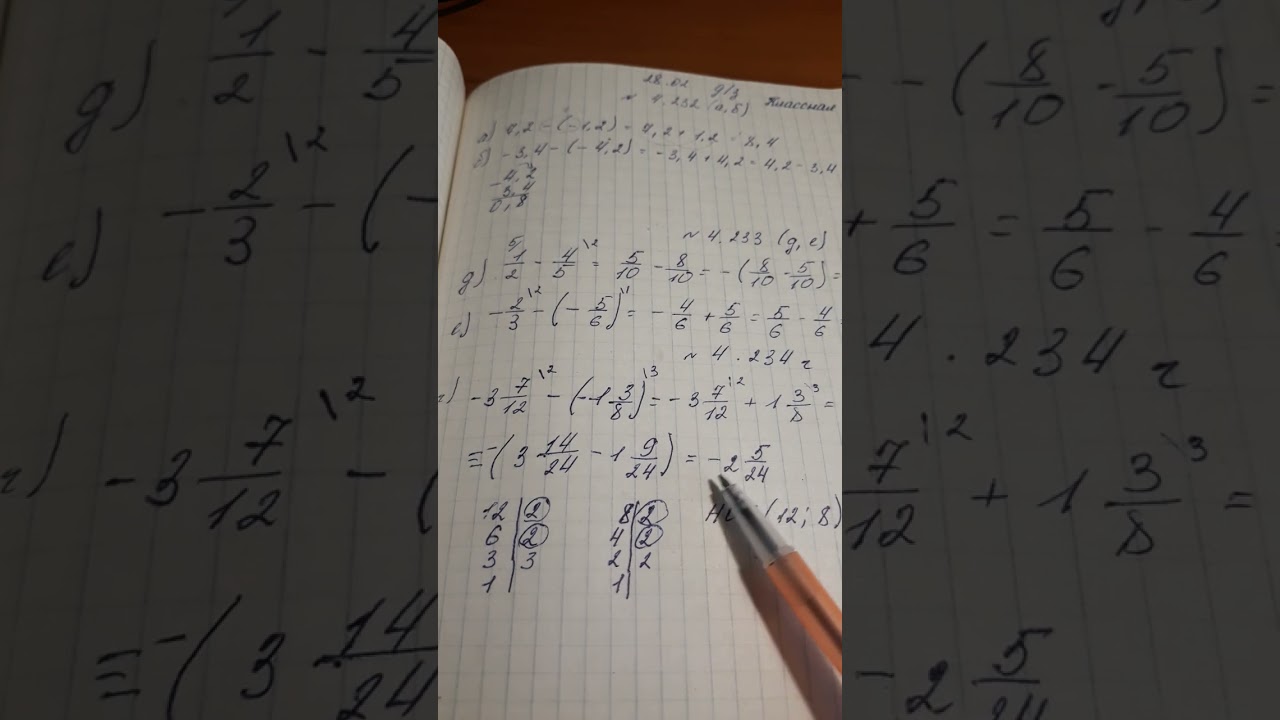 28.02 д/з
~ 4.232 (а,б) Классная
а) 7,2 - (-1,2) = 7,2 + 1,2 = 8,4
б) - 3,4 - (- 4,2) = - 3,4 + 4,2 = 4,2 - 3,4
- 4,2
3,4
0,8
~ 4.233 (д, е)
д) 1/2 \5 - 4/5 \2 = 5/10 - 8/10 = - (8/10 - 5/10) =
е) - 2/3 \2 - (- 5/6) \1 = - 4/6 + 5/6 = 5/6 - 4/6 =
~ 4.234 г
г) - 3 7/12 \2 - (- 1 3/8) \3 = - 3 7/12 \2 + 1 3/8 \3 =
= - (3 14/24 - 1 9/24) = - 2 5/24
12 | 2 8 | 2 (12; 8)
6 | 2 4 | 2
3 | 3 2 | 2
1 | 1 |